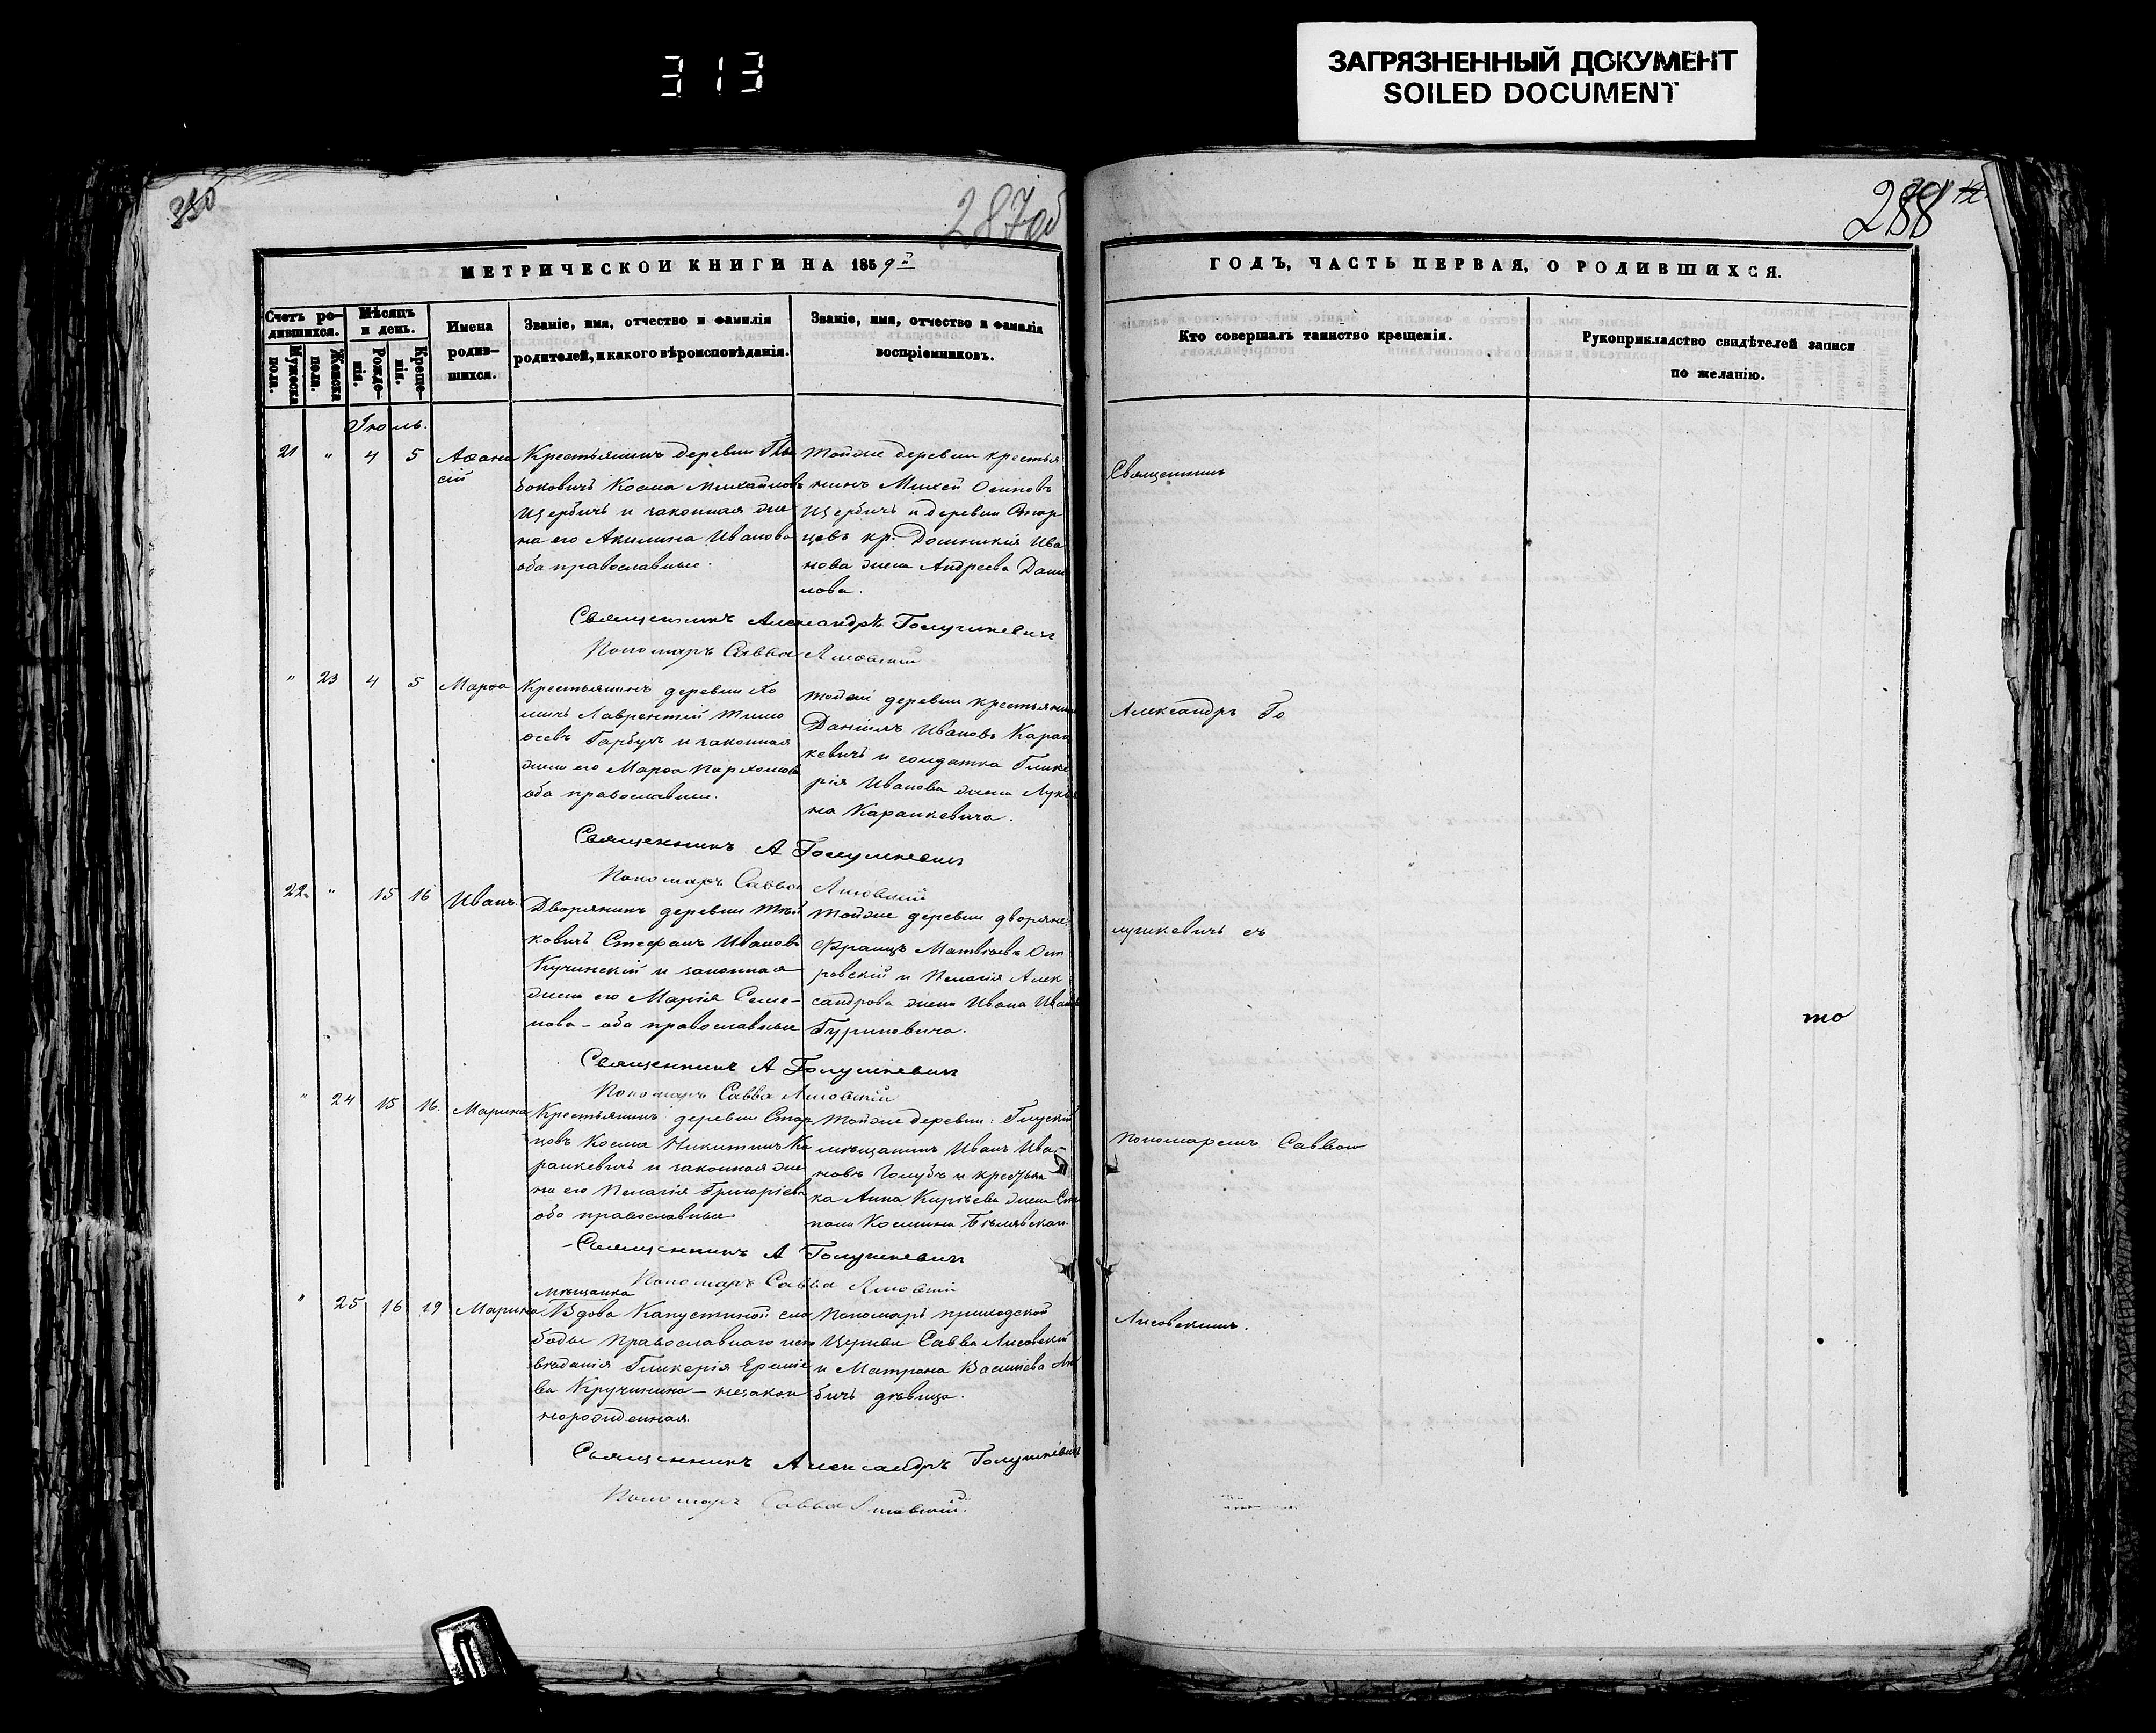 313
ЗАГРЯЗНЕННЫЙ ДОКУМЕНТ
SOILED DOCUMENT
350
287об
288
МЕТРИЧЕСКОЙ КНИГИ НА 1859й
Счетъ ро-
дившихся.
Мужеска
пола.
Женска
пола.
Мѣсяцъ
и день.
Рожде-
нія.
Креще-
нія.
Имена
родив-
шихся.
Званіе, имя, отчество и фамилія
родителей, и какого вѣроисповѣданія.
Званіе, имя, отчество и фамилія
воспріемниковъ.
Іюль.
21 " 4 5 Аѳана
сій
Крестьянинъ деревни
боковичъ Косма Михайловъ
Щербичъ и законная же
на его Акилина Иванова
оба православные.
Тойже деревни крестья
нинъ Михей Осиповъ
Щербичъ и деревни Стар
цовъ кр. Домникія Ива
нова жена Андрея Дани
лова.
Священникъ Александръ Голушкевич
Пономаръ Савва Лисовский
" 23 4 5 Марѳа
Крестьянинъ деревни Хо
мичъ Лаврентій Тимо
ѳеевъ Гарбузъ и законная
жена его Марѳа Пархомова
оба православные.
Тойже деревни крестьянин
Даніилъ Ивановъ Каран
кевичъ и солдатка Глике
рія Иванова жена Лукья
на Каранкевича.
Священникъ А Голушкевич
Пономаръ Савва Лисовский
22 " 15 16 Иванъ
Дворянинъ деревни
ковичъ Стефанъ Ивановъ
Кучинскій и законная
жена его Марія Семе-
нова - оба православные
Тойже деревни дворяне:
Францъ Матвѣевъ Ост
ровскій и Пелагія Алек
сандрова жена Ивана Иванова
Гуриновича.
Священникъ А Голушкевич
Пономаръ Савва Лисовский
" 24 15 16. Марина
Крестьянинъ деревни Стар
цовъ Косма Никитинъ Ка
ранкевичъ и законная же
на его Пелагія Григоріева
оба православные
Тойже деревни: Глускій
мѣщанинъ Иванъ Ива-
новъ Голубъ и крестьян
ка Анна Кирѣева жена Сте
пана Космина
Священникъ А Голушкевич
Пономаръ Савва Лисовский
" 25 16 19 Марина
Мѣщанка
Вдова Капустиной сло
боды Православнаго испо
вѣданія Гликерія Ереміе
ва Кручинина - незакон
норожденная
Пономаръ приходской
Церкви Савва Лисовскій
и Матрона Васильева
бичъ дѣвица.
Священникъ Александръ Голушкевич
Пономаръ Савва Лисовский.
ГОДЪ, ЧАСТЬ ПЕРВАЯ, О РОДИВШИХСЯ.
Кто совершалъ таинство крещенія.
Рукоприкладство свидѣтелей записи
по желанію.
Священникъ
Александръ Го
лушкевичъ съ
то
Пономаремъ Саввою
Лисовскимъ.